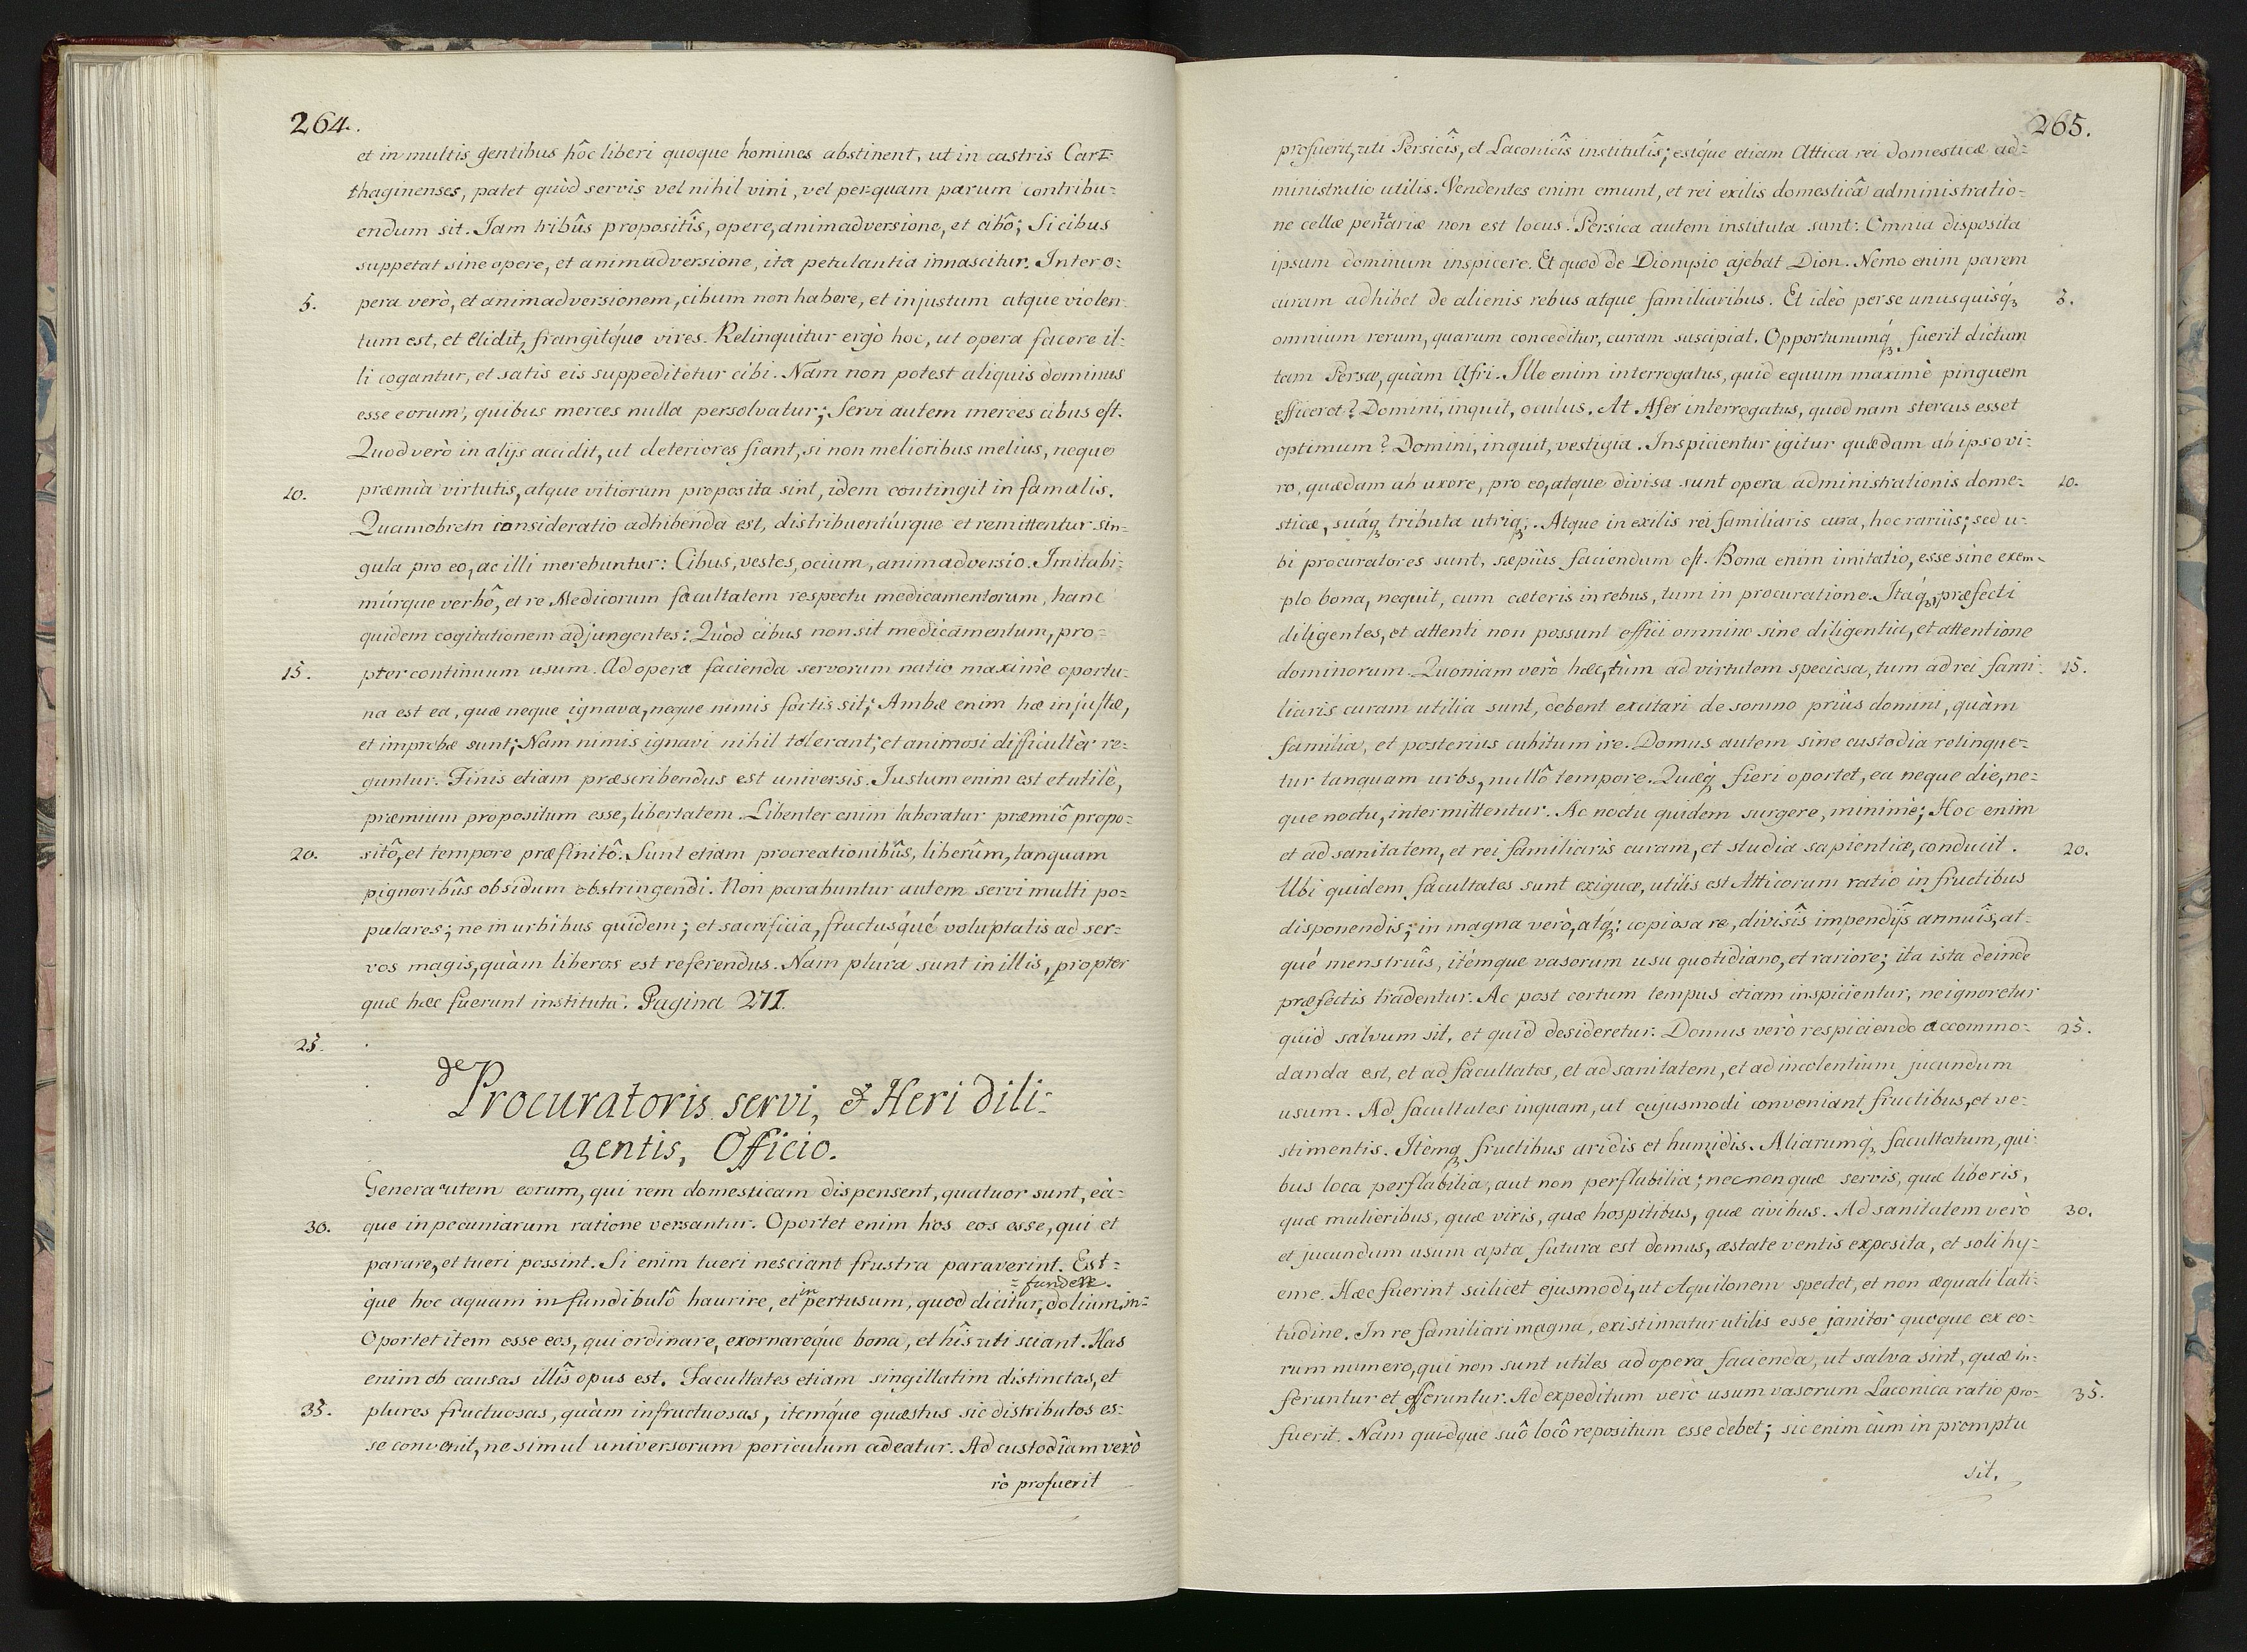 264.
et in multis gentibus hôc liberi quoque homines abstinent, ut in castris Car=
thaginenses, patet quòd servis vel nihil vini, vel perquam parum contribu=
endum sit. Iam tribûs propositîs, opere, animadversione, et cibô; Si cibus
suppetat sine opere, et animadversione, ita petulantia innascitur. Inter o=
5. pera verò, et animadversionem, cibum non habere, et injustum atque violen
tum est, et elidit, frangitq́ue vires. Relinquitur ergò hoc, ut opera facere il=
li cogantur, et satis eis suppeditetur cibi. Nam non potest aliquis dominus
esse eorum, quibus merces nulla persolvatur; Servi autem merces cibus est.
Quod verò in alijs accidit, ut deteriores fiant, si non melioribus melius, neque
10. præmia virtutis, atque vitiorum proposita sint, idem contingit in famulis.
Quamobrem consideratio adhibenda est, distribuentúrque et remittentur sin=
gula pro eo, ac illi merebuntur: Cibus, vestes, ocium, animadversio. Imitabi=
múrque verbô, et re Medicorum facultatem respectu medicamentorum, hanc
quidem cogitationem adjungentes: Quòd cibus non sit medicamentum, pro=
15. pter continuum usum. Ad opera facienda servorum natio maximè oportu=
na est ea, quæ neque ignava, neque nimis fortis sit; Ambæ enim hæ injustæ,
et improbæ sunt; Nam nimis ignavi nihil tolerant; et animosi difficultèr re=
guntur. Finis etiam præscribendus est universis. Iustum enim est et utilè,
præmium propositum esse, libertatem. Libenter enim laboratur præmiô propo=
20. sitô, et tempore præfinitô. Sunt etiam procreationibûs, liberûm, tanquam
pignoribûs obsidum obstringendi. Non parabuntur autem servi multi po=
pulares; ne in urbibus quidem; et sacrificia, fructusq́ué voluptatis ad ser=
vos magis, quàm liberos est referendus. Nam plura sunt in illis, propter
quæ hæc fuerunt instituta. Pagina 271.
25.
de
Procuratoris servi, & Heri dili=
gentis, Officio.
Genera autem eorum, qui rem domesticam dispensent, quatuor sunt, eà=
30. que in pecuniarum ratione versantur. Oportet enim hos eos esse, qui et
parare, et tueri possint. Si enim tueri nesciant frustra paraverint. Est=
= fundere.
q́ue hoc aquam infundibulô haurire, et in pertusum, quod dicitur, dolium in=
Oportet item esse eos, qui ordinare, exornareq́ue bona, et hîs uti sciant. Has
enim ob causas illîs opus est. Facultates etiam singillatim distinctas, et
35. plures fructuosas, quàm infructuosas, itemq́ue quæstus sic distributos es=
se convenit, ne simul universorum periculum adeatur. Ad custodiam verò
rò profuerit
265.
profuerit, uti Persicîs, et Laconicîs institutîs; estq́ue etiam Attica rei domesticæ ad=
ministratio utilis. Vendentes enim emunt, et rei exilis domesticâ administratio=
ne cellæ penuariæ non est locus. Persica autem instituta sunt: Omnia disposita
ipsum dominum inspicere. Et quod de Dionysio ajebat Dion. Nemo enim parem
curam adhibet de alienis rebus atque familiaribus. Et ideò per se unusquisq́ꝫ 5.
omnium rerum, quarum conceditur, curam suscipiat. Opportunumq́ꝫ fuerit dictum
tam Persæ, quàm Afri. Ille enim interrogatus, quid equum maximè pinguem
efficeret? Domini, inquit, oculus. At Afer interrogatus, quodnam stercus esset
optimum? Domini, inquit, vestigia. Inspicientur igitur quædam ab ipso vi=
ro, quædam ab uxore, pro eo, atque divisa sunt opera administrationis dome= 10.
sticæ, suáqꝫ tributa utriqꝫ. Atque in exilis rei familiaris cura, hoc rariùs; sed u=
bi procuratores sunt, sæpiùs faciendum est. Bona enim imitatio, esse sine exem=
plo bona, nequit, cum cæteris in rebus, tum in procuratione. Itáqꝫ præfecti
diligentes, et attenti non possunt effici omnino sine diligentia, et attentione
dominorum. Quoniam verò hæc, tùm ad virtutem speciosa, tum ad rei fami= 15.
liaris curam utilia sunt, debent excitari de somno priùs domini, quàm
familia, et posterius cubitum ire. Domus autem sine custodia relinque=
tur tanquam urbs, nullô tempore. Quæq́ꝫ fieri oportet, ea neque die, ne=
que noctu, intermittentur. Ac noctu quidem surgere, minimè; Hoc enim
et ad sanitatem, et rei familiaris curam, et studia sapientiæ, conducit. 20.
Ubi quidem facultates sunt exiguæ, utilis est Atticorum ratio in fructibus
disponendis; in magna verò, atq́ꝫ copiosa re, divisîs impendîjs annuîs, at=
qué menstruîs, itémque vasorum usu quotidiano, et rariore; ita ista deinde
præfectis tradentur. Ac post certum tempus etiam inspicientur, ne ignoretur
quid salvum sit, et quid desideretur. Domus verò respiciendo accommo= 25.
danda est, et ad facultates, et ad sanitatem, et ad incolentium jucundum
usum. Ad facultates inquam, ut cujusmodi conveniant fructibus, et ve=
stimentis. Itèmqꝫ fructibus aridis et humidis. Aliarumq́ꝫ facultatum, qui=
bus loca perflabilia, aut non perflabilia; necnon quæ servis, quæ liberis,
quæ mulieribus, quæ viris, quæ hospitibus, quæ civibus. Ad sanitatem verò 30.
et jucundum usum apta futura est domus, æstate ventis exposita, et soli hy=
eme. Hæc fuerint scilicet ejusmodi, ut Aquilonem spectet, et non æquali lati=
tudine. In re familiari magna, existimatur utilis esse janitor quoque ex eo=
rum numero, qui non sunt utiles ad opera facienda, ut salva sint, quæ in=
feruntur et efferuntur. Ad expeditum verò usum vasorum Laconica ratio pro= 35.
fuerit. Nam quidque suô locô repositum esse debet; sic enim cùm in promptu
sit,